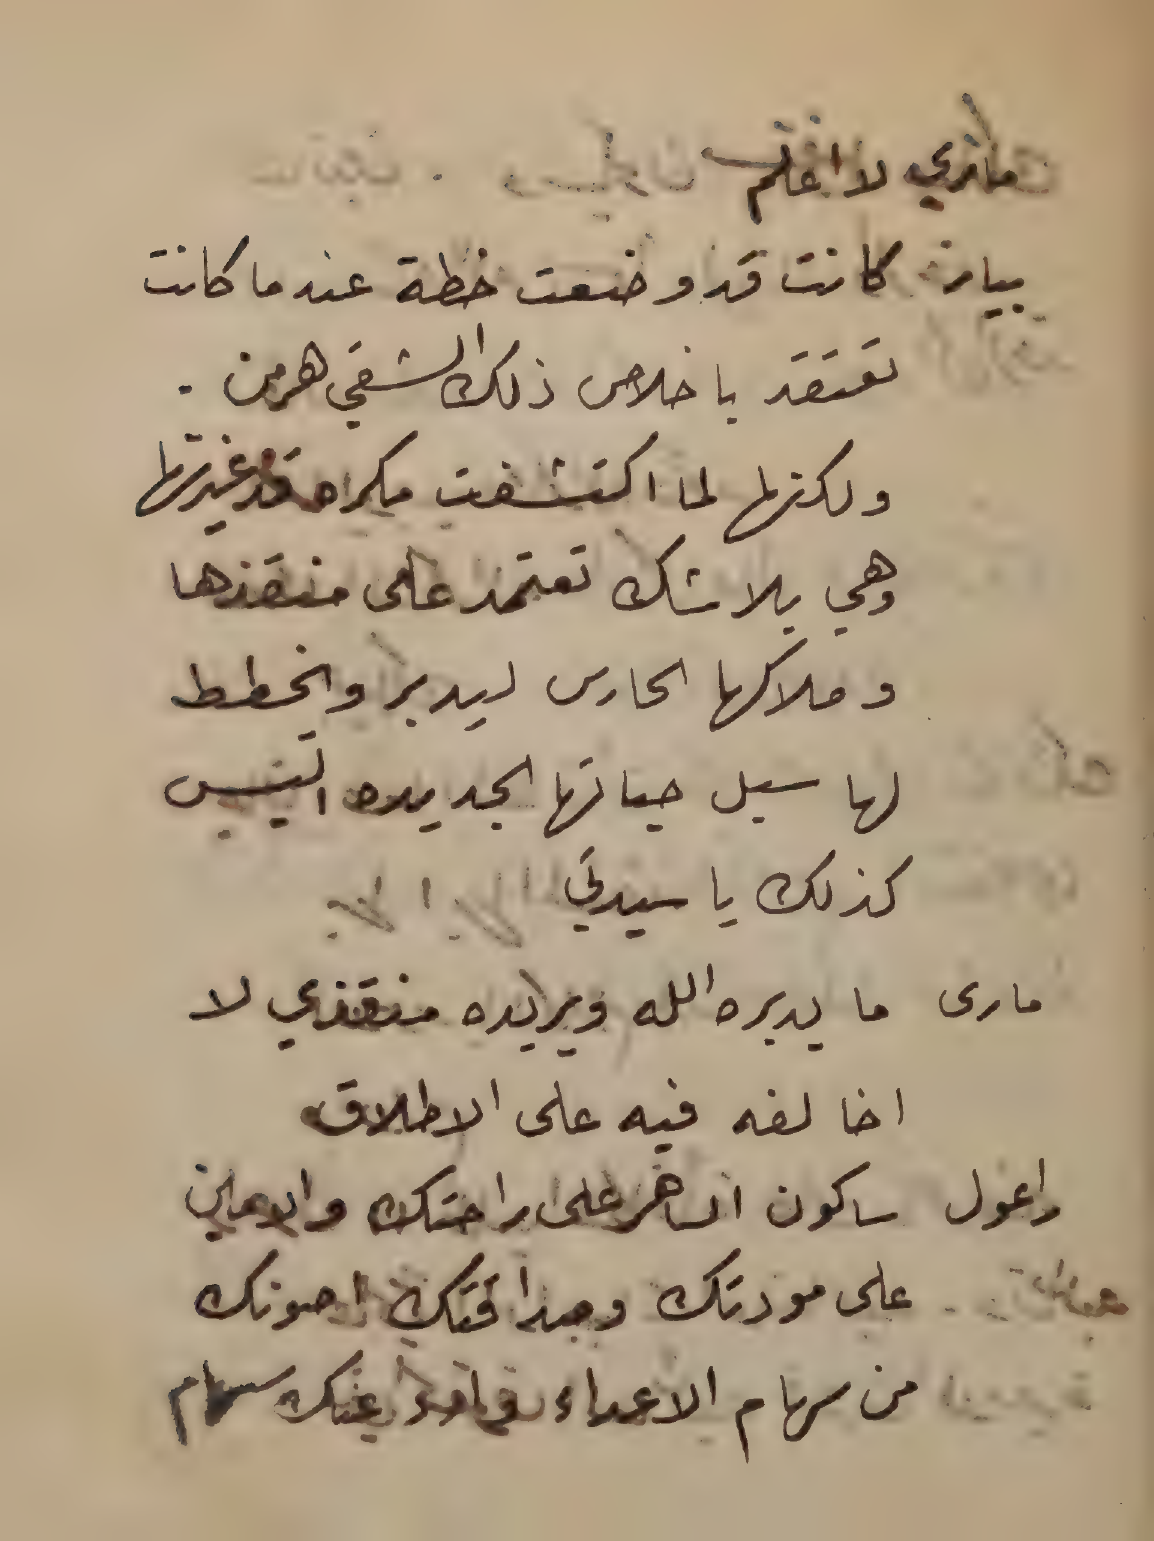 ماري لا افهم
بيار كانت قد وضعت خطة عندما كانت
تعتقد باخلاص ذلك الشقي هرمن .
ولكنها لما اكتشفت مكراه قد غيرتها
وهي بلا شك تعتمد على منقذها
وملاكها الحارس ليدبر ويخطط
لها سبل حياتها الجديده اليس
كذلك يا سيدتي
مارى ما يدبره الله ويريده منقذي لا
اخالفه فيه على الاطلاق
ساكون الساهر على راحتك والامين
على مودتك وصداقتك اصونك
من سهام الاعداء عنك سهام